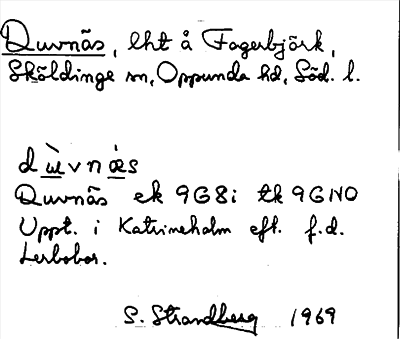 Duvnäs, lht å Fagerbjörk,
Sköldinge sn, Oppunda hd, Söd. l.
dùvnæ̀s
Duvnäs ek 9G8i tk 9GNO
Uppt. i Katrineholm eft. f.d.
Lerbobor.
S. Strandberg 1969